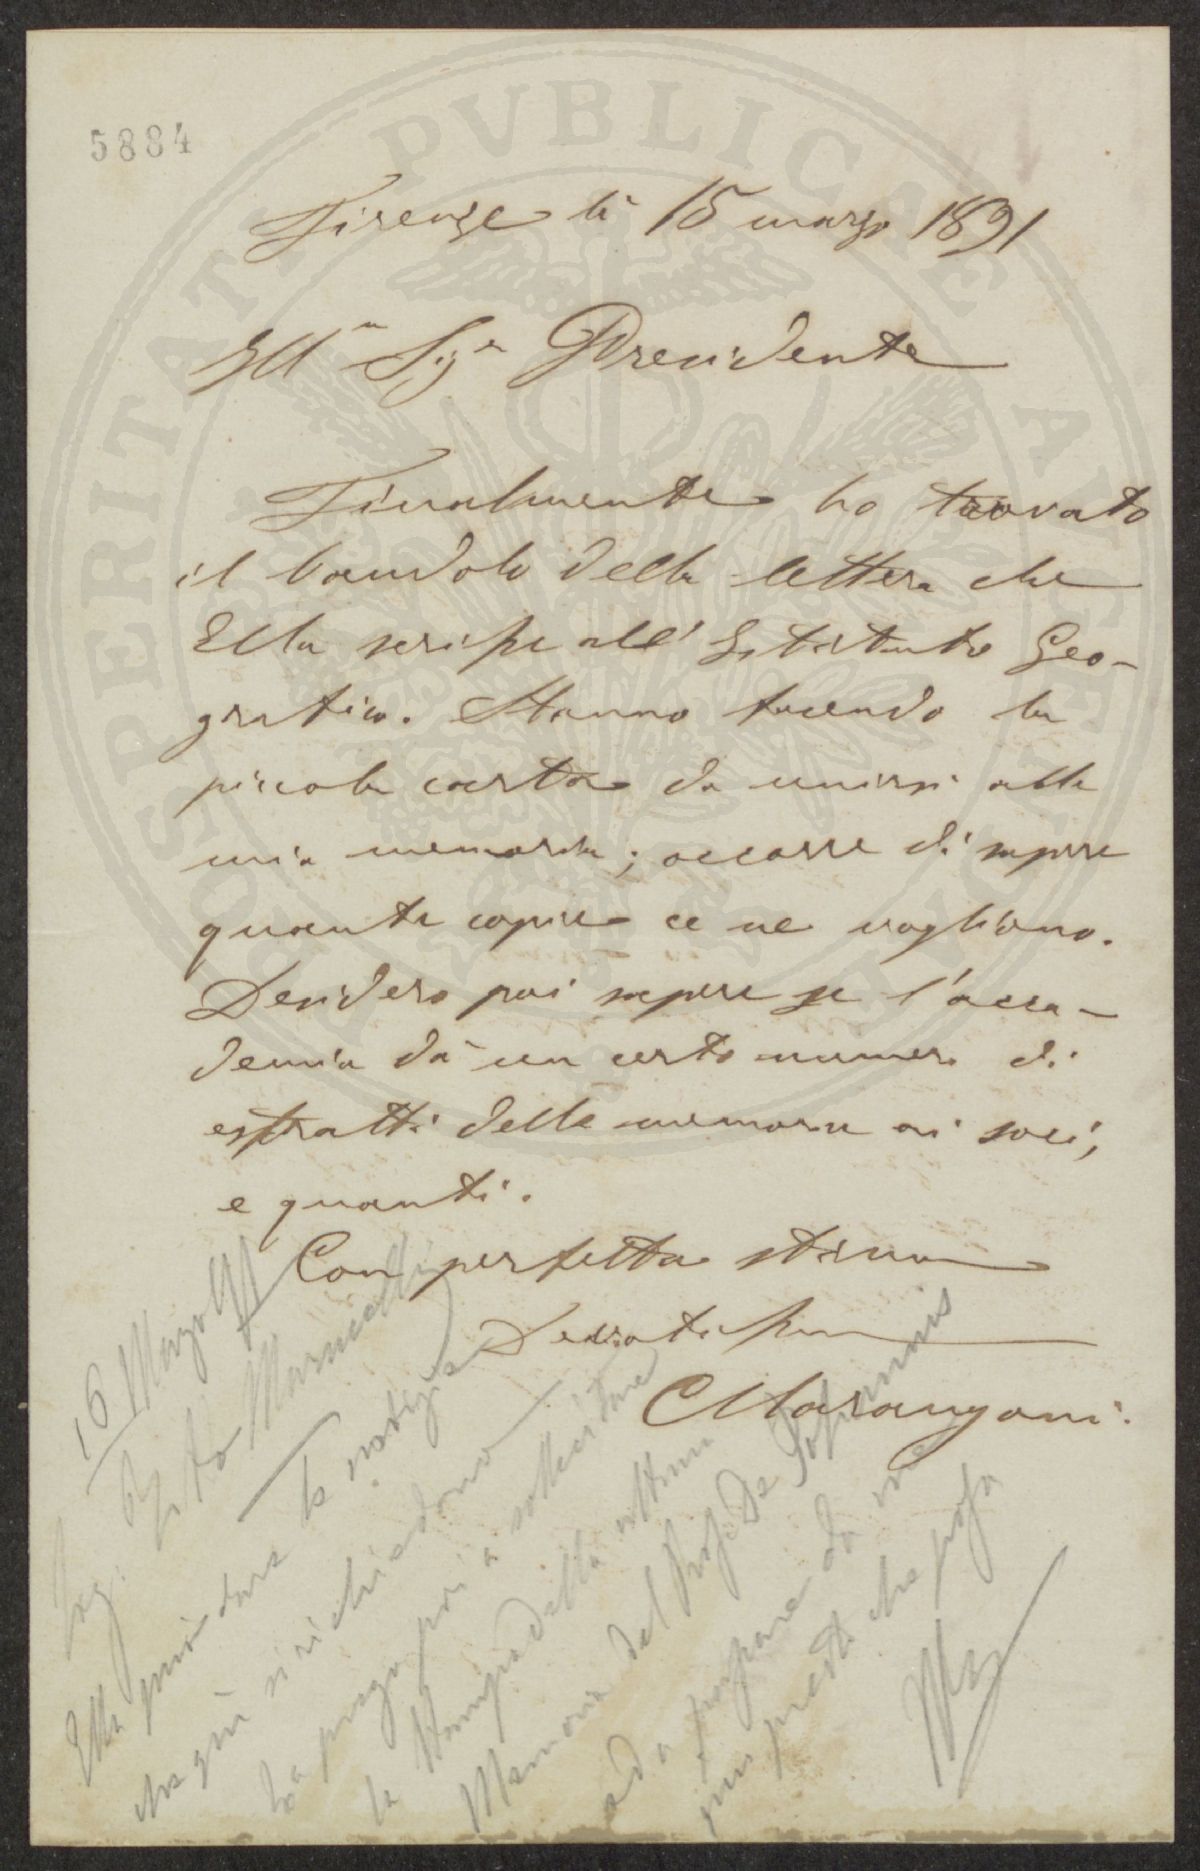 5884
Firenze li 15 marzo 1891
Ill.mo Sig.r Presidente
Finalmente ho trovato
il bandolo della lettera che
Ella scrisse all' Istituto Geo-
grafico. Stanno facendo la
piccola carta da unirsi alla
mia memoria; occorre di sapere
quante copie ce ne vogliono.
Desidero poi sapere se l'acca-
demia dà un certo numero di
estratti delle memorie ai soci,
e quanti.
Con perfetta stima
Devotissimo
C Marangoni.
16 Marzo 91
Ella può dare le notizie
che qui si richiedono
La prego poi a sollecitare
la stampa della ultima
Memoria del Prof. De Johannis
ad a passare da me
più presto che possa